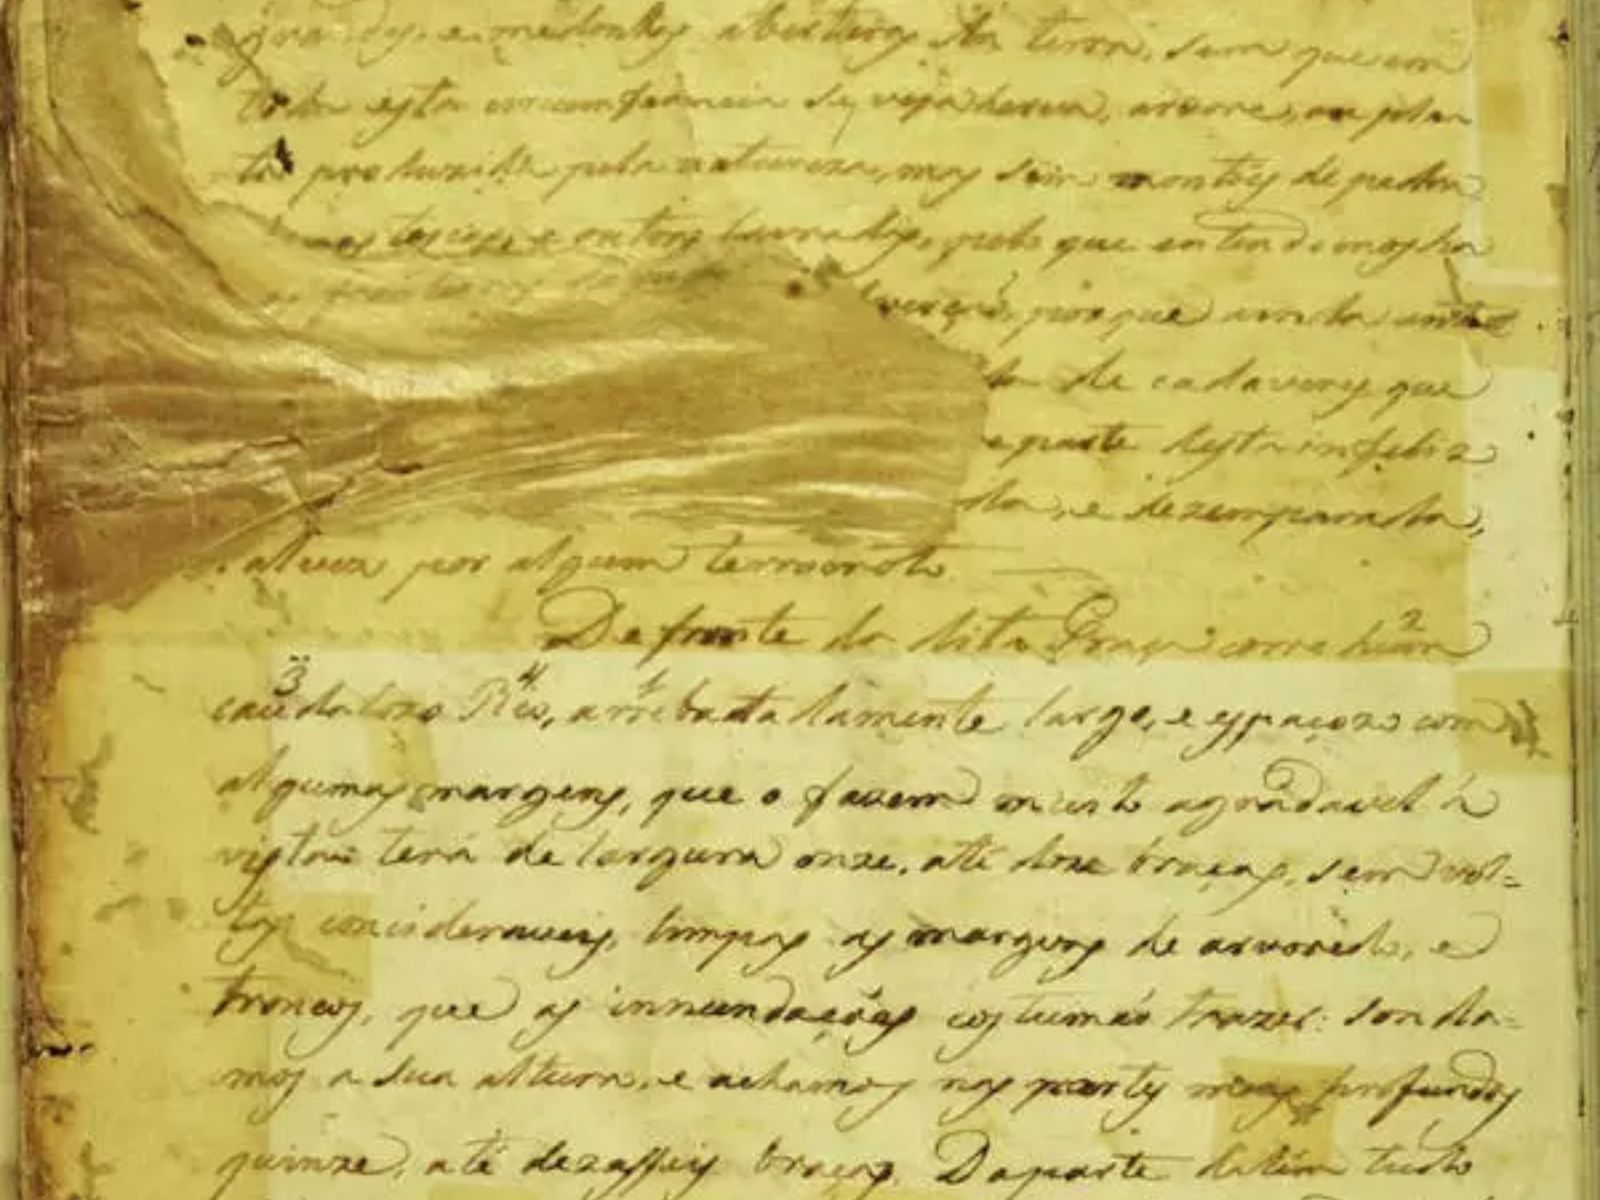 grandes, e medonhas aberturas da terra, sem que em
toda esta circumferencia se veja herva, arvore, ou plan
ta produzida pela natureza, mas sim montes de pedra
humas toscas, e outras lavradas, pelo que entendemos ha
verçaõ, porque ainda entre
da de cadaveres, que
e parte desta infeliz
da, e dezemparada,
talvez por algum terremoto.
Defronte da dita Praça corre hum 2
3 caudalozo Rio, 4 arrebatadamente 1 largo, e espaçozo com
algumas margens, que o fazem muito agradavel á
vista: terá de largura onze, até doze braças, sem vol=
tas concideraveis, limpas as margens de arvoredo, e
troncos, que as innundações costumaõ trazer: sonda=
mos a sua altura, e achamos nas partes mais profundas
quinze, até dezasseis braças. Daparte dalém tudo